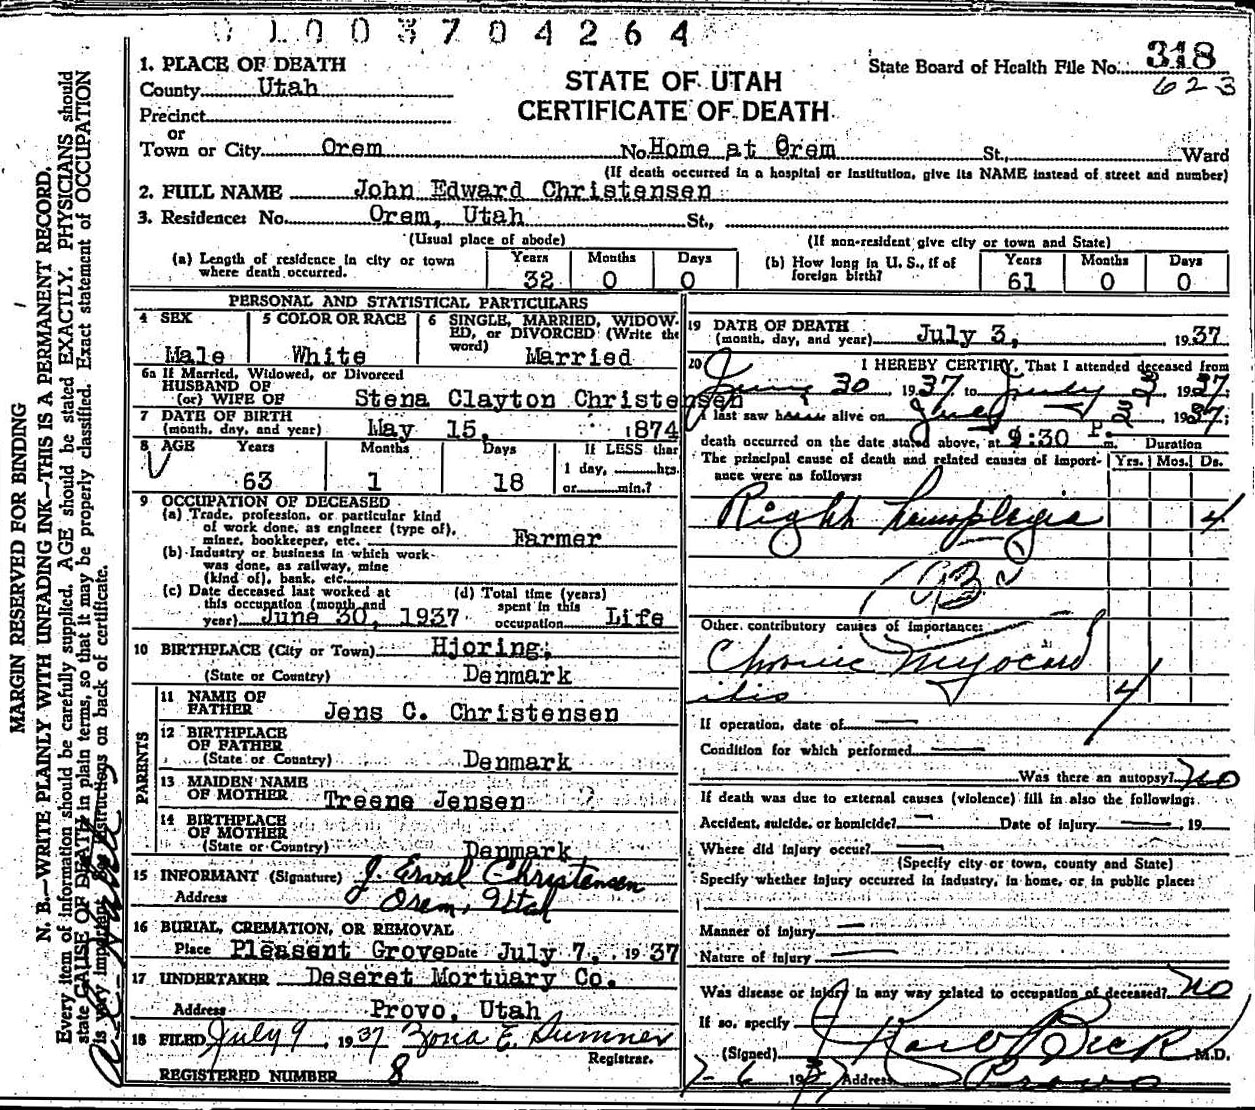 0100370 4264
1. PLACE OF DEATH
County Utah
Precinct
or
Town or City Orem
STATE OF UTAH
CERTIFICATE OF DEATH
State Board of Health File No. 318
623
No. Home at Orem St., Ward
(If death occurred in a hospital or institution, give its NAME instead of street and number)
2. FULL NAME John Edward Christensen
3. Residence: No. Orem, Utah St.,
(Usual place of abode) (If non-resident give city or town and State)
(a) Length of residence in city or town where death occurred. Years 32 Months 0 Days 0
(b) How long in U. S., if of foreign birth? Years 61 Months 0 Days 0
PERSONAL AND STATISTICAL PARTICULARS
4 SEX Male
5 COLOR OR RACE White
6 SINGLE, MARRIED, WIDOWED, or DIVORCED (Write the word) Married
6a If Married, Widowed, or Divorced
HUSBAND OF
(or) WIFE OF Stena Clayton Christensen
7 DATE OF BIRTH
(month, day, and year) May 15, 1874
8 AGE Years 63 Months 1 Days 18 If LESS than 1 day, hrs. or min.?
9 OCCUPATION OF DECEASED
(a) Trade, profession, or particular kind
of work done, as engineer (type of),
miner, bookkeeper, etc. Farmer
(b) Industry or business in which work
was done, as railway, mine
(kind of), bank, etc.
(c) Date deceased last worked at
this occupation (month and
year) June 30, 1937
(d) Total time (years)
spent in this
occupation Life
10 BIRTHPLACE (City or Town) Hjoring,
(State or Country) Denmark
PARENTS
11 NAME OF
FATHER Jens C. Christensen
12 BIRTHPLACE
OF FATHER
(State or Country) Denmark
13 MAIDEN NAME
OF MOTHER Treene Jensen
14 BIRTHPLACE
OF MOTHER
(State or Country) Denmark
15 INFORMANT (Signature) J. Erval Christensen
Address Orem, Utah
16 BURIAL, CREMATION, OR REMOVAL
Place Pleasent Grove Date July 7, 1937
17 UNDERTAKER Deseret Mortuary Co.
Address Provo, Utah
18 FILED July 9, 1937 Zona E. Sumner
Registrar.
REGISTERED NUMBER 8
19 DATE OF DEATH
(month, day, and year) July 3, 1937
20 I HEREBY CERTIFY, That I attended deceased from
June 30 1937, to July 3 1937;
I last saw h alive on July 3, 1937;
death occurred on the date stated above, at :30 P. m.
Duration
The principal cause of death and related causes of importance were as follows: Yrs. Mos. Ds.
Right hemiplegia 4
Other contributory causes of importance:
Chronic Myocard
itis 4
If operation, date of
Condition for which performed
Was there an autopsy? No
If death was due to external causes (violence) fill in also the following:
Accident, suicide, or homicide? Date of injury , 19
Where did injury occur?
(Specify city or town, county and State)
Specify whether injury occurred in industry, in home, or in public place:
Manner of injury
Nature of injury
Was disease or injury in any way related to occupation of deceased? No
If so, specify
(Signed) J Karl Beck M.D.
7-6 1937 Address Provo
MARGIN RESERVED FOR BINDING
N. B.—WRITE PLAINLY WITH UNFADING INK—THIS IS A PERMANENT RECORD.
Every item of information should be carefully supplied. AGE should be stated EXACTLY. PHYSICIANS should
state CAUSE OF DEATH in plain terms, so that it may be properly classified. Exact statement of OCCUPATION
is very important. See instructions on back of certificate.